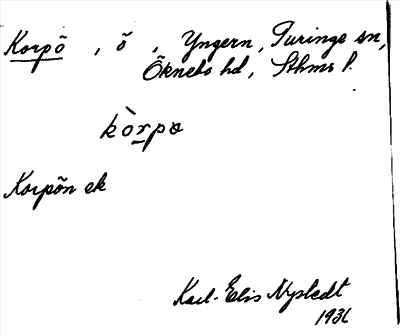 Korpö, ö, Yngern, Turinge sn,
Öknebo hd, Sthms l.
kòrpø
Korpön ek
Karl-Elis Nystedt
1936